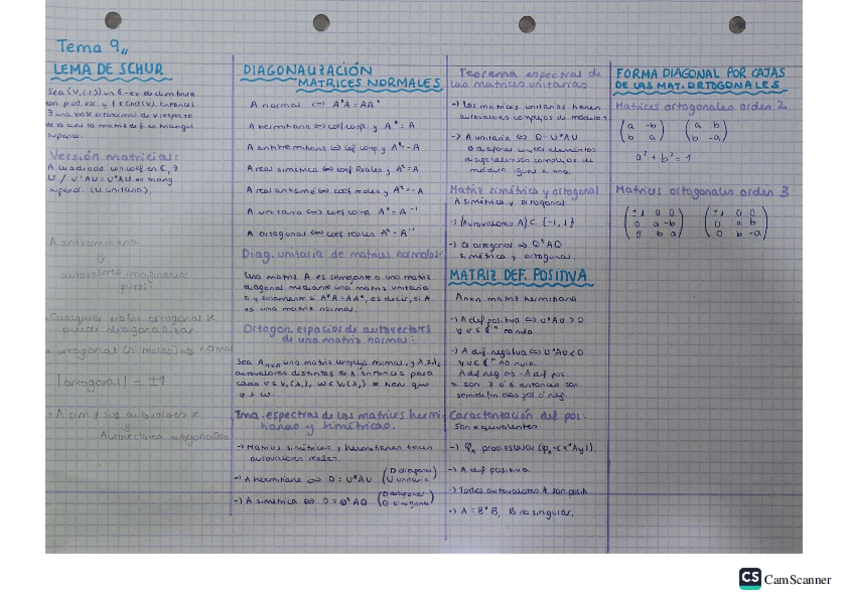 Tema 9,,
LEMA DE SCHUR
Sea (V,(,)) un ℂ-ev de dim finita
con prod. esc. y f ∈ End(V). Entonces
∃ una base ortonormal de V respecto
de la cual la matriz de f es triangul
superior.
Versión matricial:
A cuadrada con coef en ℂ, ∃
U / U⁻¹AU = U*AU es triang
superior. (U unitaria).
A antihermitiana
y
autovalores imaginarios
puros
Cualquier matriz ortogonal se
puede diagonalizar.
ortogonal (si reales) => normal
|ortogonal| = ±1
Autovectores ortogonales
DIAGONALIZACIÓN
MATRICES NORMALES
A normal <=> A*A = AA*
A hermitiana <=> coef. comp. y A* = A
A antihermitiana <=> coef comp y A* = -A
A real simétrica <=> coef Reales y Aᵗ = A
A real antisimé <=> coef reales y Aᵗ = -A
A unitaria <=> coef comp A* = A⁻¹
A ortogonal <=> coef reales Aᵗ = A⁻¹
Diag. unitaria de matrices normales:
Una matriz A es semejante a una matriz
diagonal mediante una matriz unitaria
si y solamente si A*A = AA*, es decir, si A
es una matriz normal.
Ortogon. espacios de autovectores
de una matriz normal:
Sea Anxn una matriz compleja normal, y λ1, λ2
autovalores distintos de A entonces para
cada v ∈ V(λ1), w ∈ V(λ2) se tiene que
v ⊥ w.
Tma. espectral de las matrices hermi
tianas y simétricas.
-> Matrices simétricas y hermitianas tienen
autovalores reales
-> A hermitiana <=> D = U*AU (D diagonal U unitaria)
-> A simétrica <=> D = QᵗAQ (D diagonal Q ortogonal)
Teorema espectral de
las matrices unitarias
-> Las matrices unitarias tienen
autovalores complejos de módulo 1
-> A unitaria <=> D = U*AU
D diagonal cuyos elementos
diagonales son complejos de
módulo igual a uno.
Matriz simétrica y ortogonal
A simétrica y ortogonal
-> {Autovalores A} ⊂ {-1, 1}
-> Q ortogonal => QᵗAQ
simétrica y ortogonal.
MATRIZ DEF. POSITIVA
Anxn matriz hermitiana
-> A def positiva <=> v*Av > 0
∀ v ∈ ℂⁿ no nulo
-> A def. negativa <=> v*Av < 0
∀ v ∈ ℂⁿ no nulo
A def neg <=> -A def pos
si son ≥ ó ≤ entonces son
semidefinidas pos ó neg.
Caracterización def pos:
son equivalentes
-> φA prod. escalar (φA = (x*Ay)).
-> A def positiva.
-> Todos autovalores A son posit
-> A = B*B, B no singular.
FORMA DIAGONAL POR CAJAS
DE LAS MAT. ORTOGONALES.
Matrices ortogonales orden 2
(a -b) (a b)
(b a) (b -a)
a² + b² = 1
Matrices ortogonales orden 3
(±1 0 0) (±1 0 0)
(0 a -b) (0 a b)
(0 b a) (0 b -a)
CS CamScanner